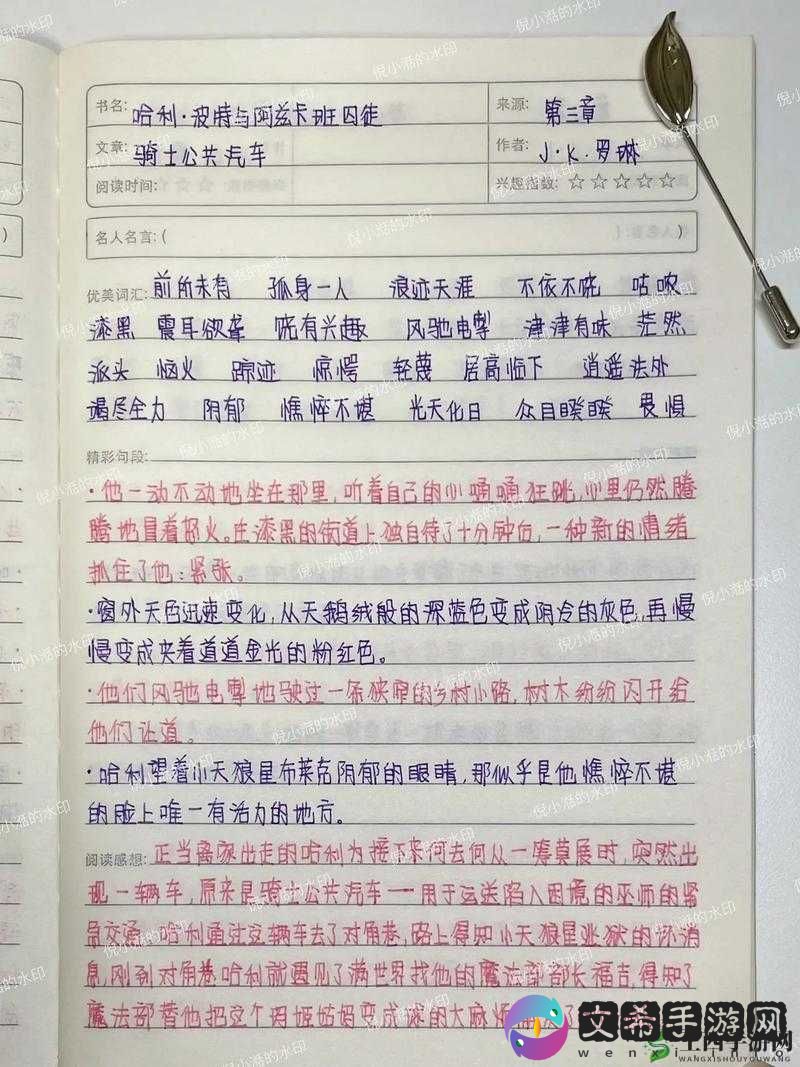 书名: 哈利·波特与阿兹卡班囚徒 来源: 第三章
文章: 骑士公共汽车 作者: J·K·罗琳
阅读时间: 兴趣指数: ☆☆☆☆☆
名人名言:( )
优美词汇: 前所未有 孤身一人 浪迹天涯 不依不饶 咕哝
漆黑 震耳欲聋 饶有兴趣 风驰电掣 津津有味 茫然
派头 恼火 踪迹 惊愕 轻蔑 居高临下 逍遥法外
竭尽全力 阴郁 憔悴不堪 光天化日 众目睽睽 畏惧
精彩句段:
·他一动不动地坐在那里,听着自己的心嗵嗵狂跳,心里仍然腾
腾地冒着怒火。在漆黑的街道上独自待了十分钟后,一种新的情绪
抓住了他:紧张。
·窗外天色迅速变化,从天鹅绒般的深蓝色变成阴冷的灰色,再慢
慢变成夹着道道金光的粉红色。
·他们风驰电掣地驶过一条狭窄的乡村小路,树木纷纷闪开给
他们让道。
·哈利望着小天狼星布莱克阴郁的眼睛,那似乎是他憔悴不堪
的脸上唯一有活力的地方。
阅读感想: 正当离家出走的哈利为接下来何去何从一筹莫展时,突然出
现一辆车,原来是骑士公共汽车——用于运送陷入困境的巫师的紧
急交通。哈利通过这辆车去了对角巷,路上得知小天狼星逃狱的坏消
息,刚到对角巷哈利就遇见了满世界找他的魔法部部长福吉,得知了
魔法部替他把这个玛姬姑妈变成球的大麻烦
倪小湉的水印
文希手游网
wenxi
手游网
WANGXISHOUYOUWANG